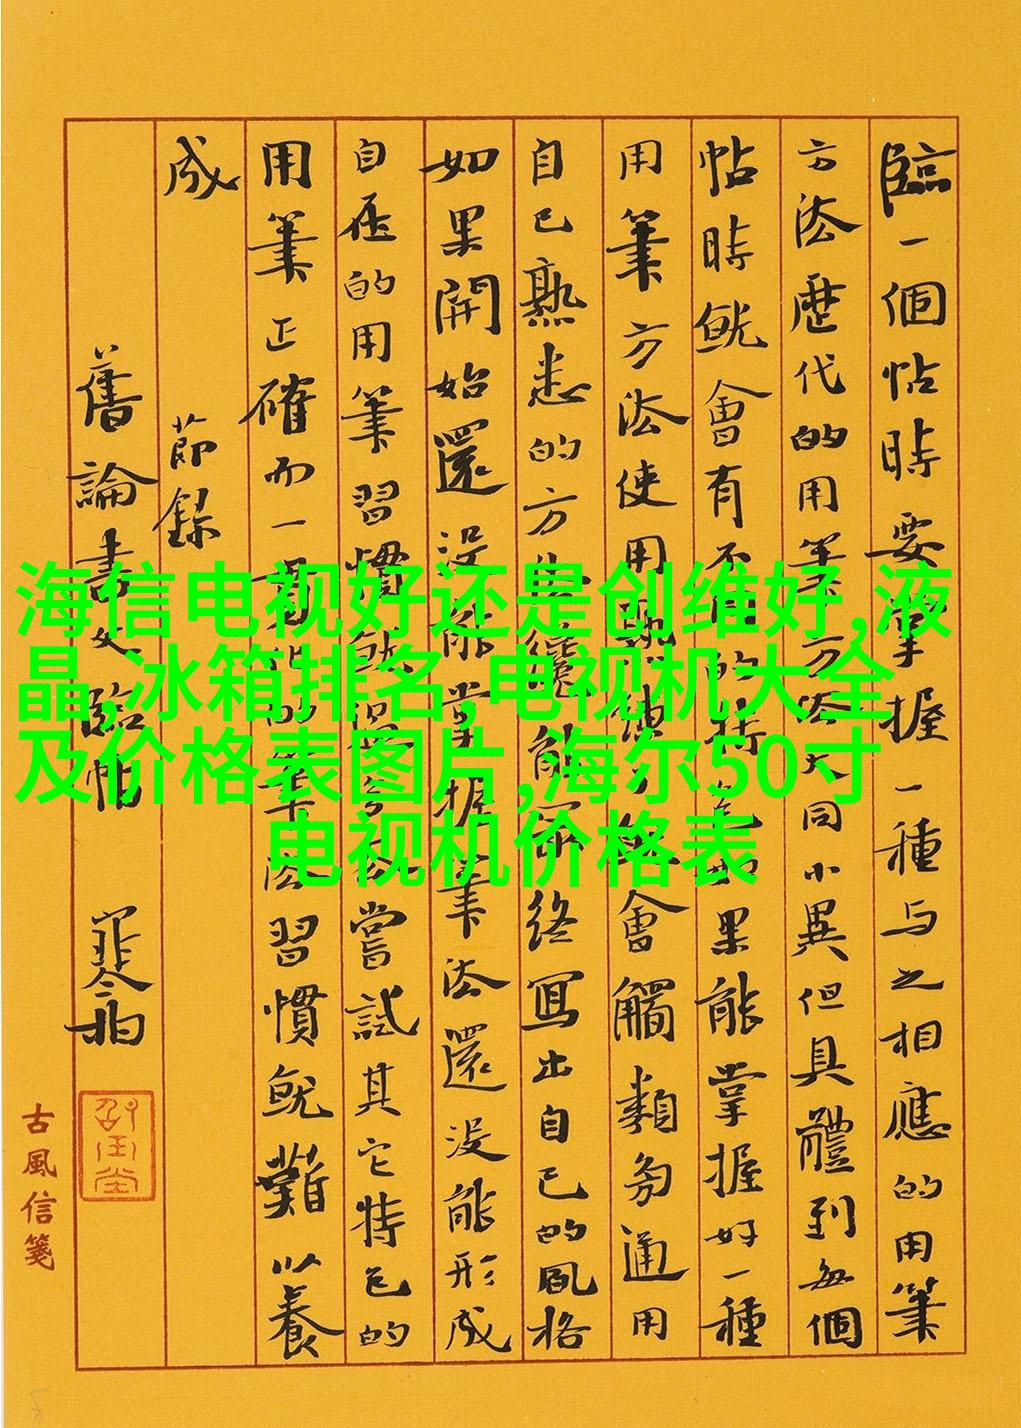 臨一個帖時要掌握一種与之相應的用筆
方法歷代的用筆方法大同小異但具體到每個
帖時就會有不同的特色如果能掌握好一種
用筆方法使用會觸類旁通用
自己熟悉的方法能終寫出自己的風格
如果開始還沒能掌握筆法還沒能形成
自在的用筆習慣就過嘗試其它特色的
用筆正確而一的筆法習慣就難以養
成 節錄
舊論書文臨帖
古風信箋
海信电视好还是创维好,液
晶,冰箱排名,电视机大全
及价格表图片,海尔50寸
电视机价格表